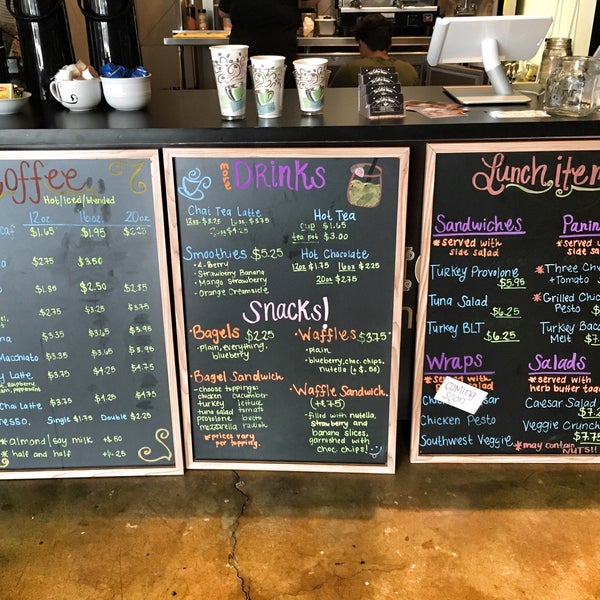 Coffee
Hot/Iced/blended
12oz 16oz 20oz
$1.65 $1.95 $2.25
$2.75 $3.50
$1.85 $2.50 $2.75
$2.75 $3.25 $3.75
$3.35 $3.65 $3.95
Macchiato $3.35 $3.65 $3.95
Latte $3.75 $4.25 $4.75
Chai Latte $3.75 $4.25 $4.75
Single $1.75 Double $2.25
*almond/soy milk +$.50
*half and half +$.25
more DRINKS
Chai Tea Latte
12oz $3.25 16oz $3.75
20oz $4.25
Hot Tea
cup $1.65
tea pot $3.00
Smoothies $5.25
• 4-Berry
• Strawberry Banana
• Mango Strawberry
• Orange Creamsicle
Hot Chocolate
12oz $1.75 16oz $2.25
20oz $2.75
Snacks!
•Bagels $2.25
•plain, everything,
blueberry
•Waffles $3.75
•plain
•blueberry, choc. chips,
nutella (+$.50)
•Bagel Sandwich
•choose toppings:
chicken cucumber
turkey lettuce
tuna salad tomato
provolone pesto
mozzarella radish
*prices vary
per topping.
•Waffle Sandwich
(+$.75)
•filled with nutella,
strawberry and
banana slices,
garnished with
choc. chips!
Lunch item
Sandwiches
*served with
side salad
Turkey Provolone
$5.95
Tuna Salad
$6.25
Turkey BLT
$6.25
Panin
*served with
side sa
*Three Che
+Tomato
*Grilled Chic
Pesto
Turkey Baco
Melt
Wraps
*served with
Coming
Soon!
Chicken Pesto
Southwest Veggie
Salads
*served with
herb butter toa
Caesar Salad
Veggie Crunch
$7.75
*may contain
NUTS!!